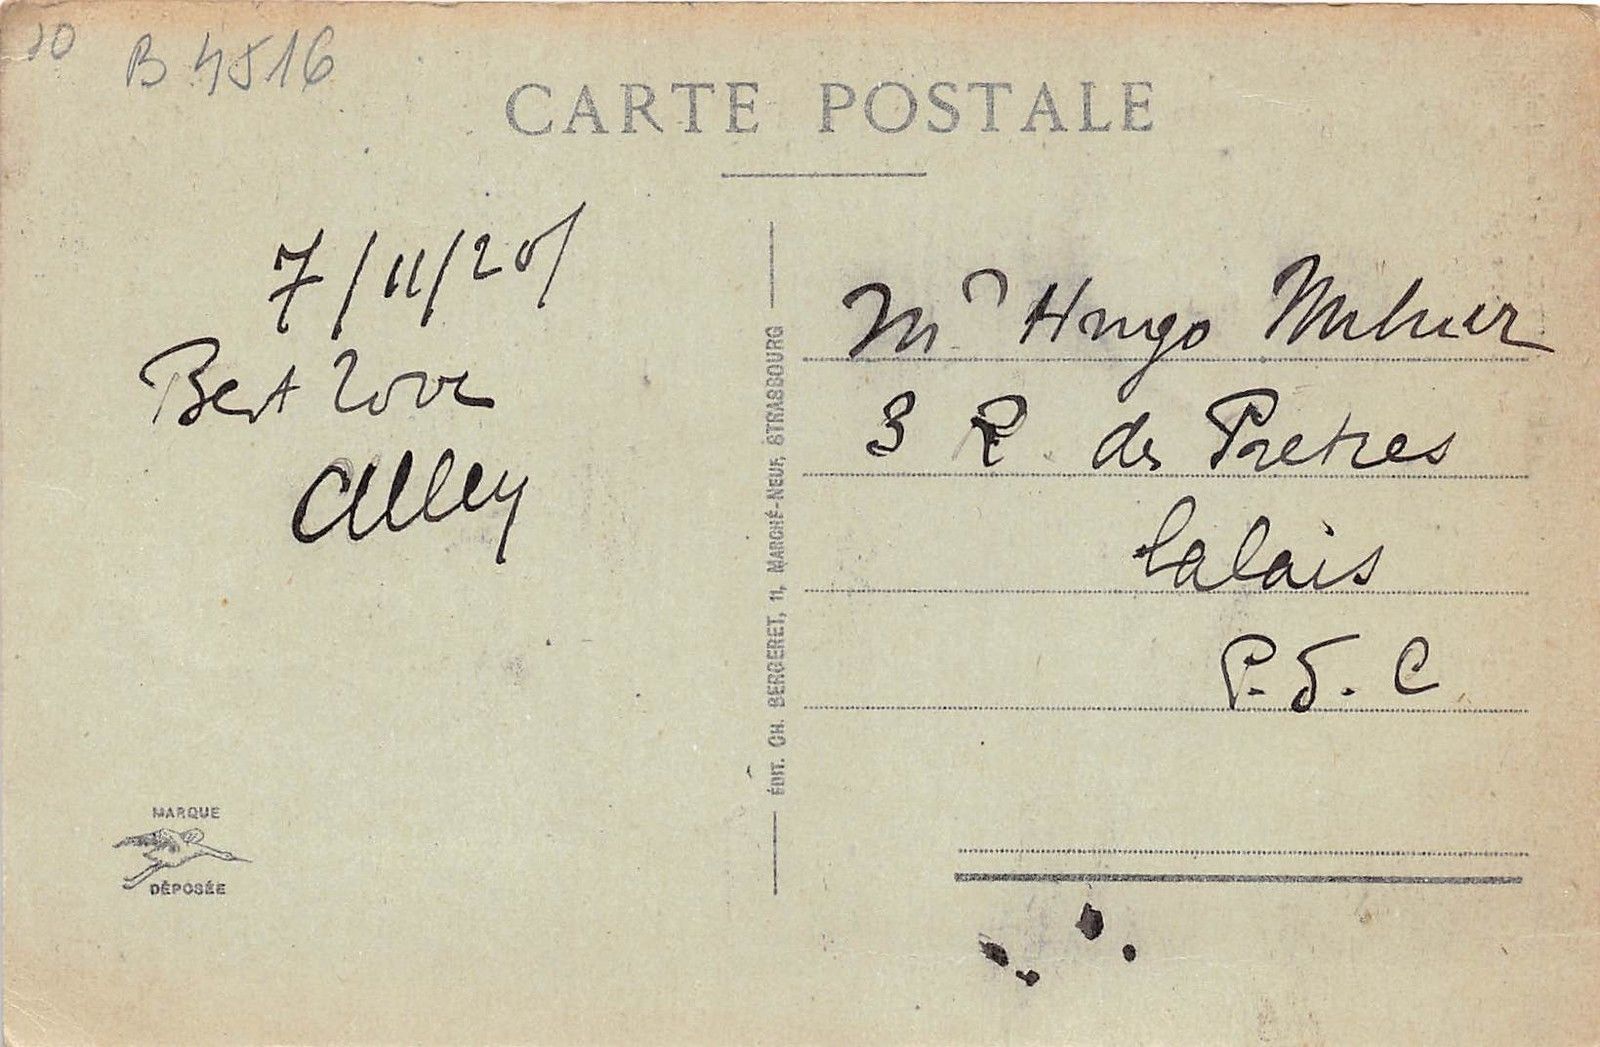 10
B 4516
CARTE POSTALE
7/11/20/
Best love
Alley
MARQUE
DÉPOSÉE
ÉDIT. CH. BERGERET, 11, MARCHÉ-NEUF, STRASBOURG
Mr Hugo
3 R. des Pretres
Calais
P. d. C